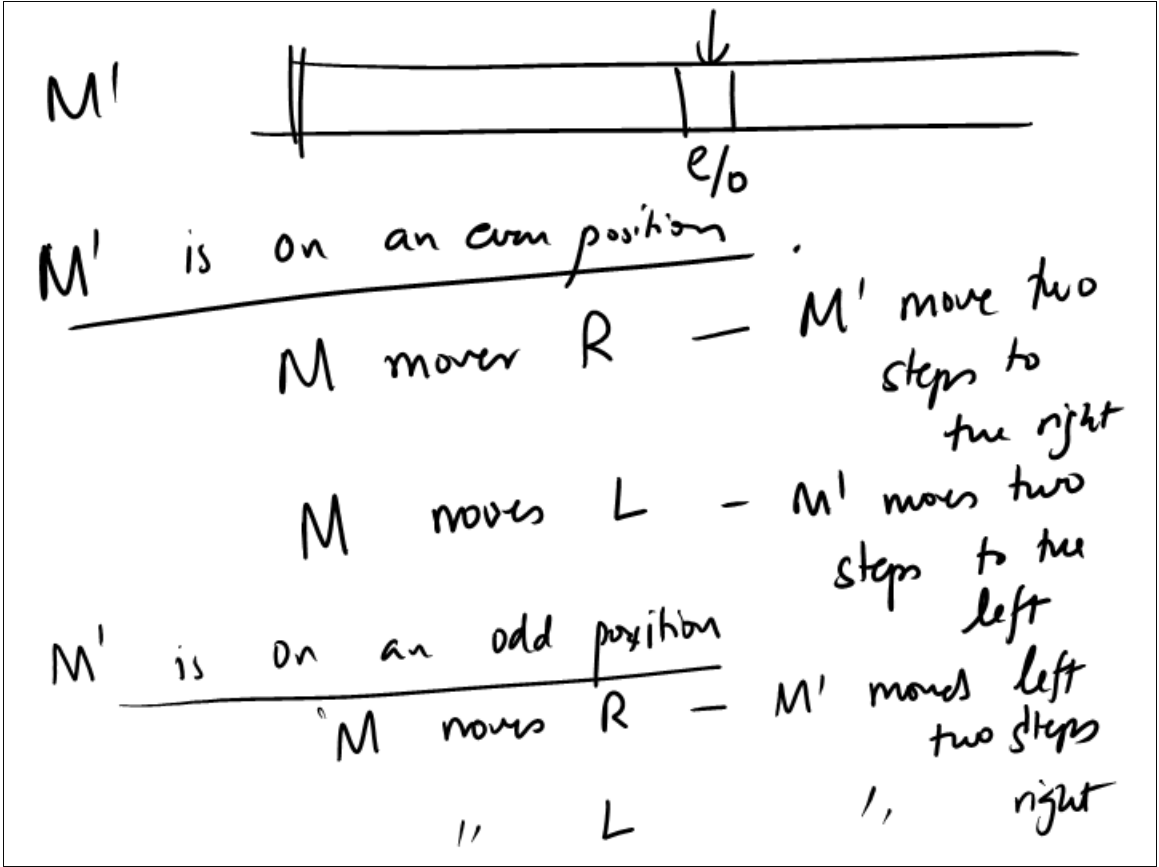 M'
e/o
M' is on an even position .
M moves R — M' move two
steps to
the right
M moves L – M' moves two
steps to the
left
M' is on an odd position
M moves R — M' moves left
two steps
" L " right